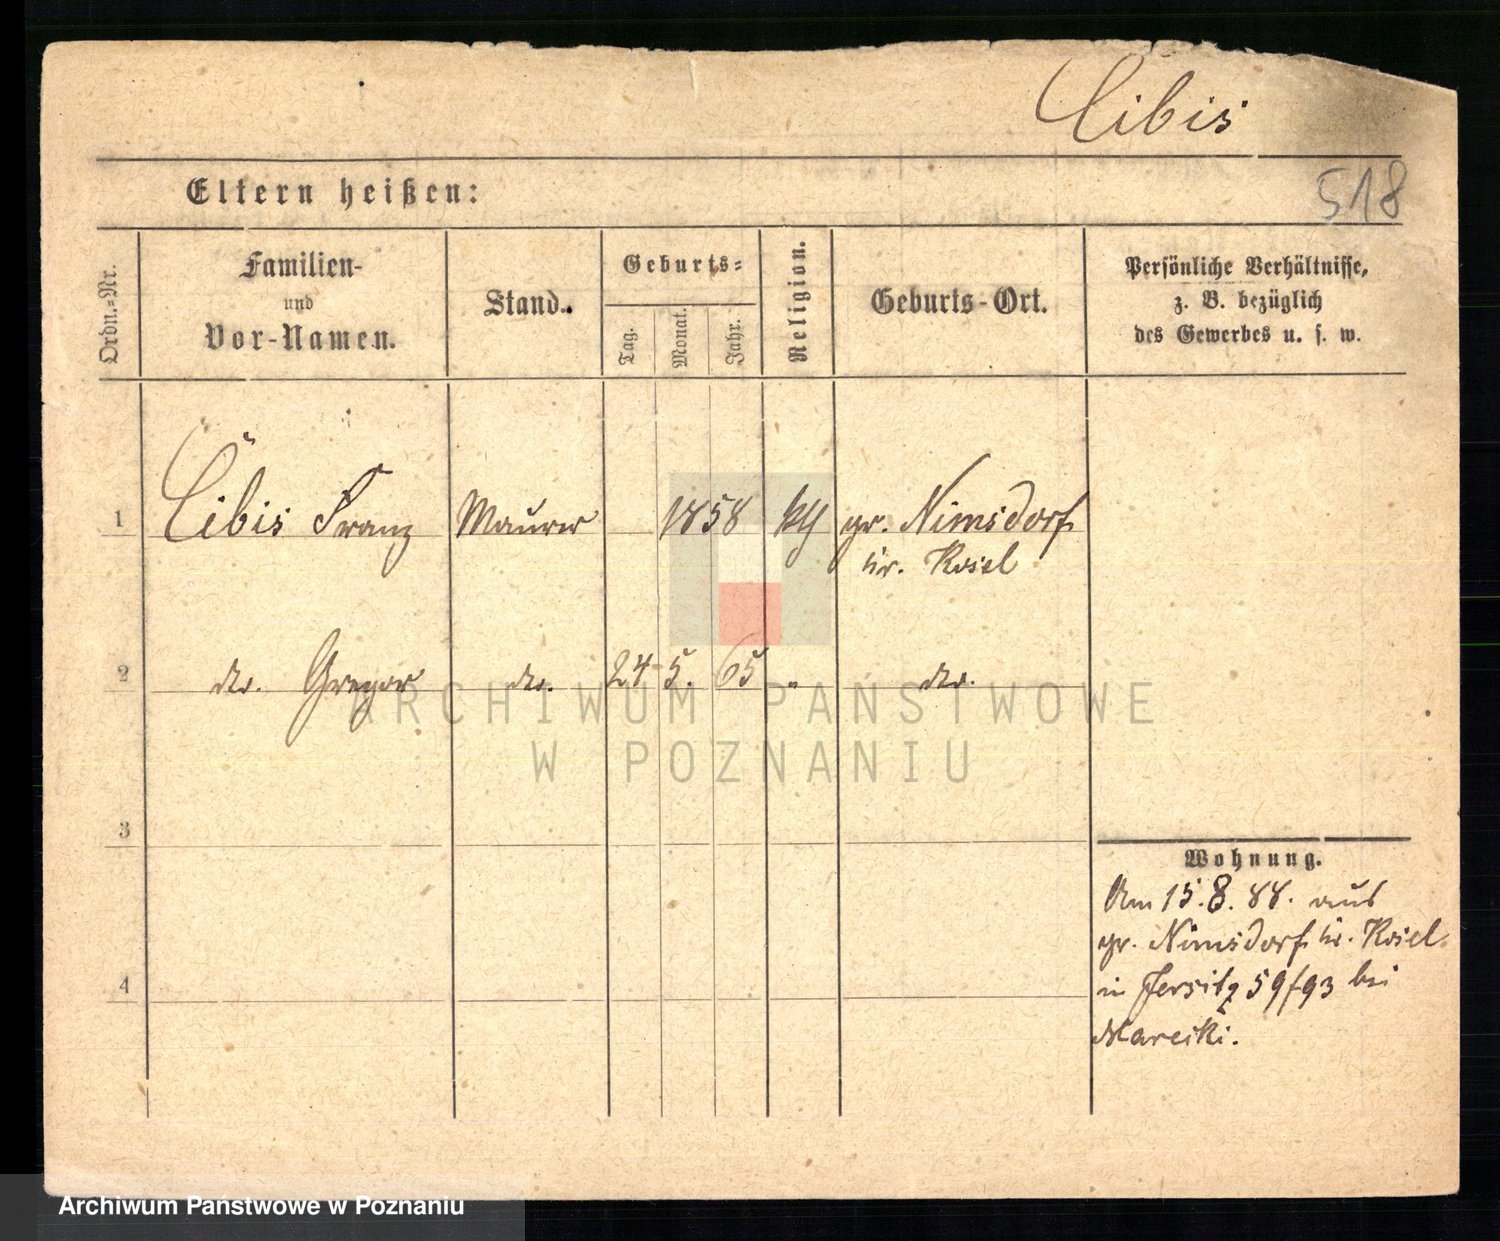 Cibis
518
Eltern heißen:
Ordn.-Nr.
Familien-
und
Vor-Namen.
Stand.
Geburts-
Tag.
Monat.
Jahr.
Religion.
Geburts-Ort.
Persönliche Verhältnisse,
z. B. bezüglich
des Gewerbes u. s. w.
1 Cibis Franz Maurer 1858 kth gr. Nimsdorf
kr. Kosel
2 do. Gregor do. 24 5. 65 " do.
3
4
Wohnung.
Am 15. 8. 88. aus
gr. Nimsdorf kr. Kosel.
in Jersitz 59/93 bei
Marecki.
ARCHIWUM PAŃSTWOWE
W POZNANIU
Archiwum Państwowe w Poznaniu